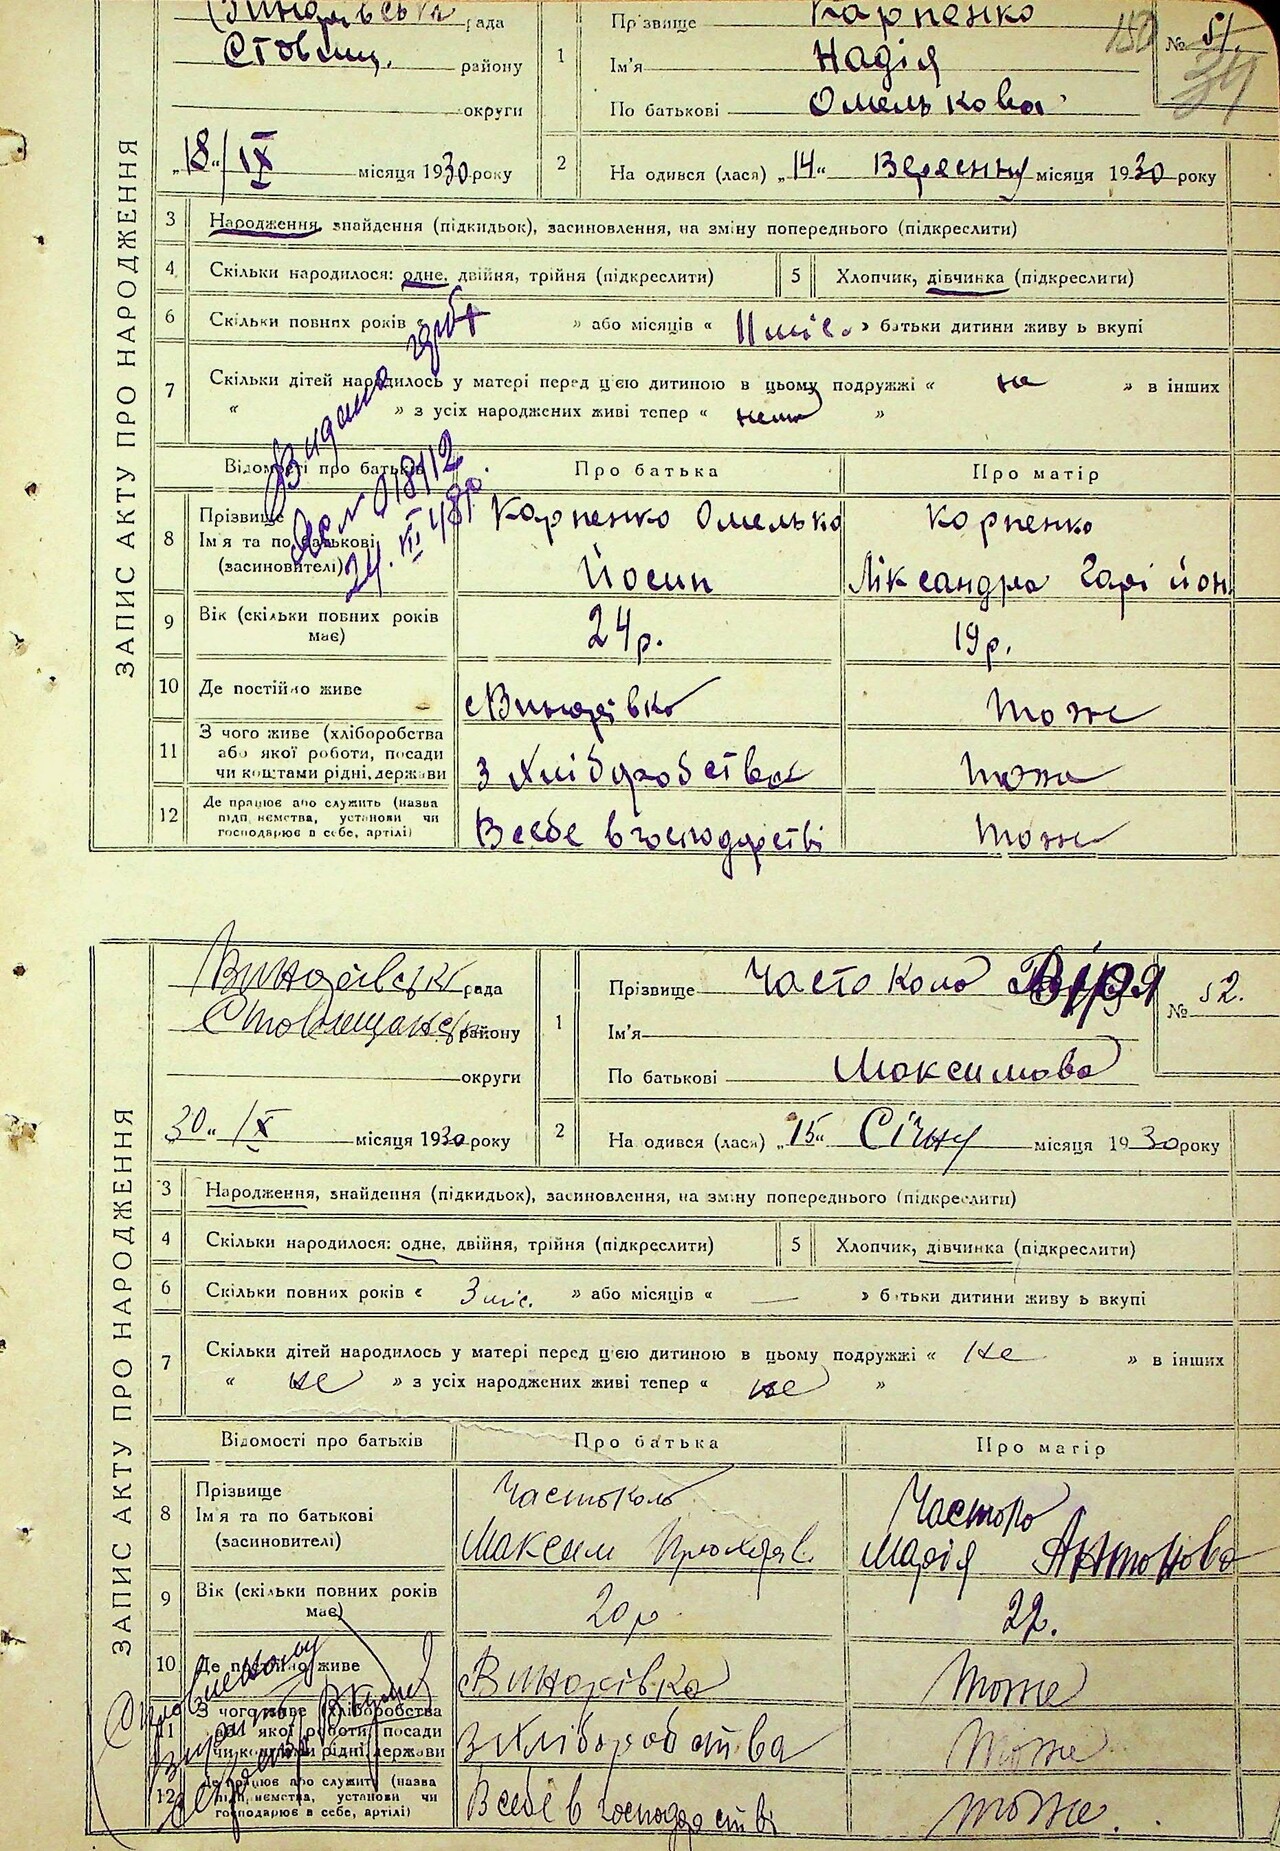 ЗАПИС АКТУ ПРО НАРОДЖЕННЯ
рада
Стовищ. району
округи
„18“ IX місяця 1930 року
1
Прізвище Карпенко
Ім'я Надія
По батькові Омелькова
№ 51.
34
2
На одився (лася) „14“ Вересню місяця 1930 року
3 Народження, знайдення (підкидьок), засиновлення, на зміну попереднього (підкреслити)
4 Скільки народилося: одне, двійня, трійня (підкреслити)
5 Хлопчик, дівчинка (підкреслити)
6 Скільки повних років « » або місяців « 11 міс. » батьки дитини живу ь вкупі
7 Скільки дітей народилось у матері перед ц'єю дитиною в цьому подружжі « не » в інших
« » з усіх народжених живі тепер « нема »
Видано
№ 018112
24. VI 48р.
Відомості про батьків
Про батька
Про матір
8 Прізвище
Ім'я та по батькові
(засиновителі)
Карпенко Омелько
Йосип
Карпенко
Ліксандра
9 Вік (скільки повних років має)
24 р.
19 р.
10 Де постійно живе
с Винарівка
тоже
11 З чого живе (хліборобства
або якої роботи, посади
чи коштами рідні, держави
З Хліборобства
тоже
12 Де працює або служить (назва
підп иємства, установи чи
господарює в себе, артілі)
В себе в господарстві
тоже
ЗАПИС АКТУ ПРО НАРОДЖЕННЯ
Винарівські рада
Стовищанськ району
округи
30“ IX місяця 1930 року
1
Прізвище Частокола Віря
Ім'я
По батькові Максимова
№ 52.
2
На одився (лася) „15“ Січну місяця 1930 року
3 Народження, знайдення (підкидьок), засиновлення, на зміну попереднього (підкреслити)
4 Скільки народилося: одне, двійня, трійня (підкреслити)
5 Хлопчик, дівчинка (підкреслити)
6 Скільки повних років « 3 міс. » або місяців « — » батьки дитини живу ь вкупі
7 Скільки дітей народилось у матері перед ц'єю дитиною в цьому подружжі « не » в інших
« не » з усіх народжених живі тепер « не »
Відомості про батьків
Про батька
Про матір
8 Прізвище
Ім'я та по батькові
(засиновителі)
Частоколо
Максим
Марія Антонова
9 Вік (скільки повних років має)
20 р.
22.
10 Де постійно живе
с Винарівка
тоже
11 З чого живе (хліборобства
або якої роботи, посади
чи коштами рідні, держави
З Хліборобства
тоже
12 Де працює або служить (назва
підп иємства, установи чи
господарює в себе, артілі)
В себе в господарстві
тоже.